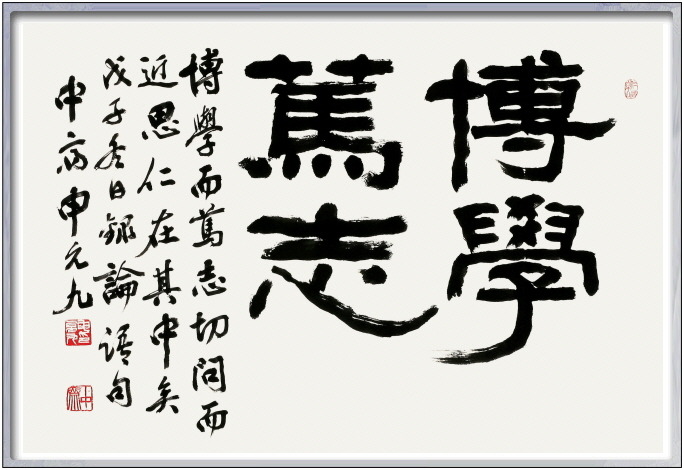 博學
篤志
博學而篤志切問而
近思仁在其中矣
戊子冬日錄論語句
中 申元九